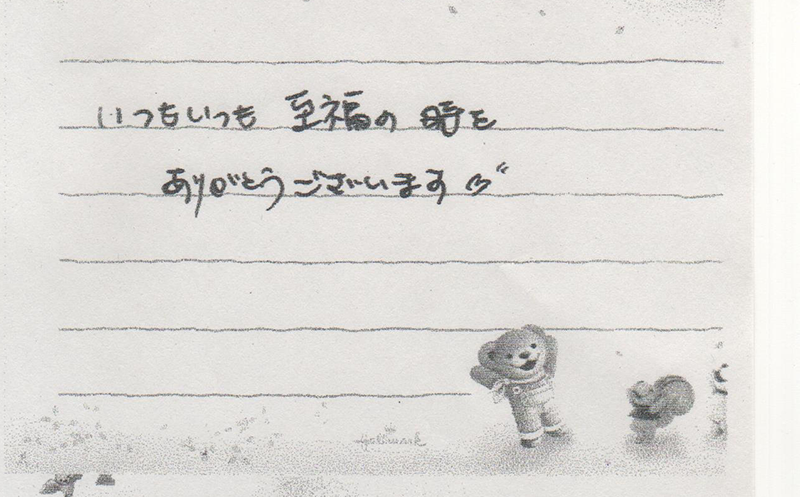 いつもいつも 至福の 時を
ありがとうございます♡
Hallmark